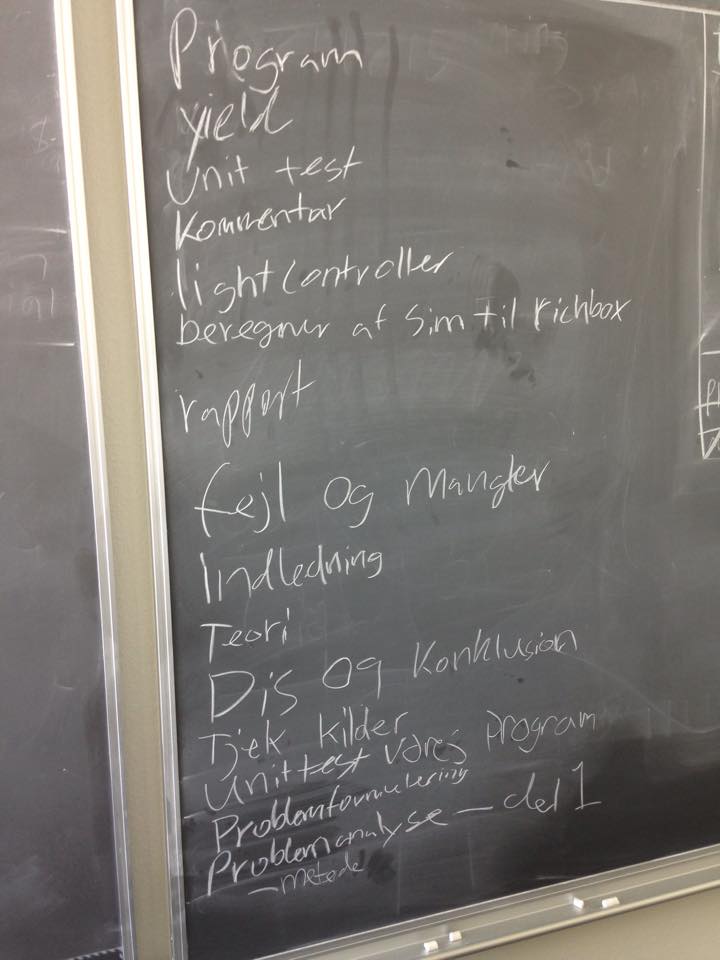 Program
yield
Unit test
kommentar
lightcontroller
beregner af sim til richbox
rapport
fejl og mangler
Indledning
Teori
Dis og konklusion
Tjek kilder
Unittest vores program
Problemformulering
Problemanalyse - del 1
- metode